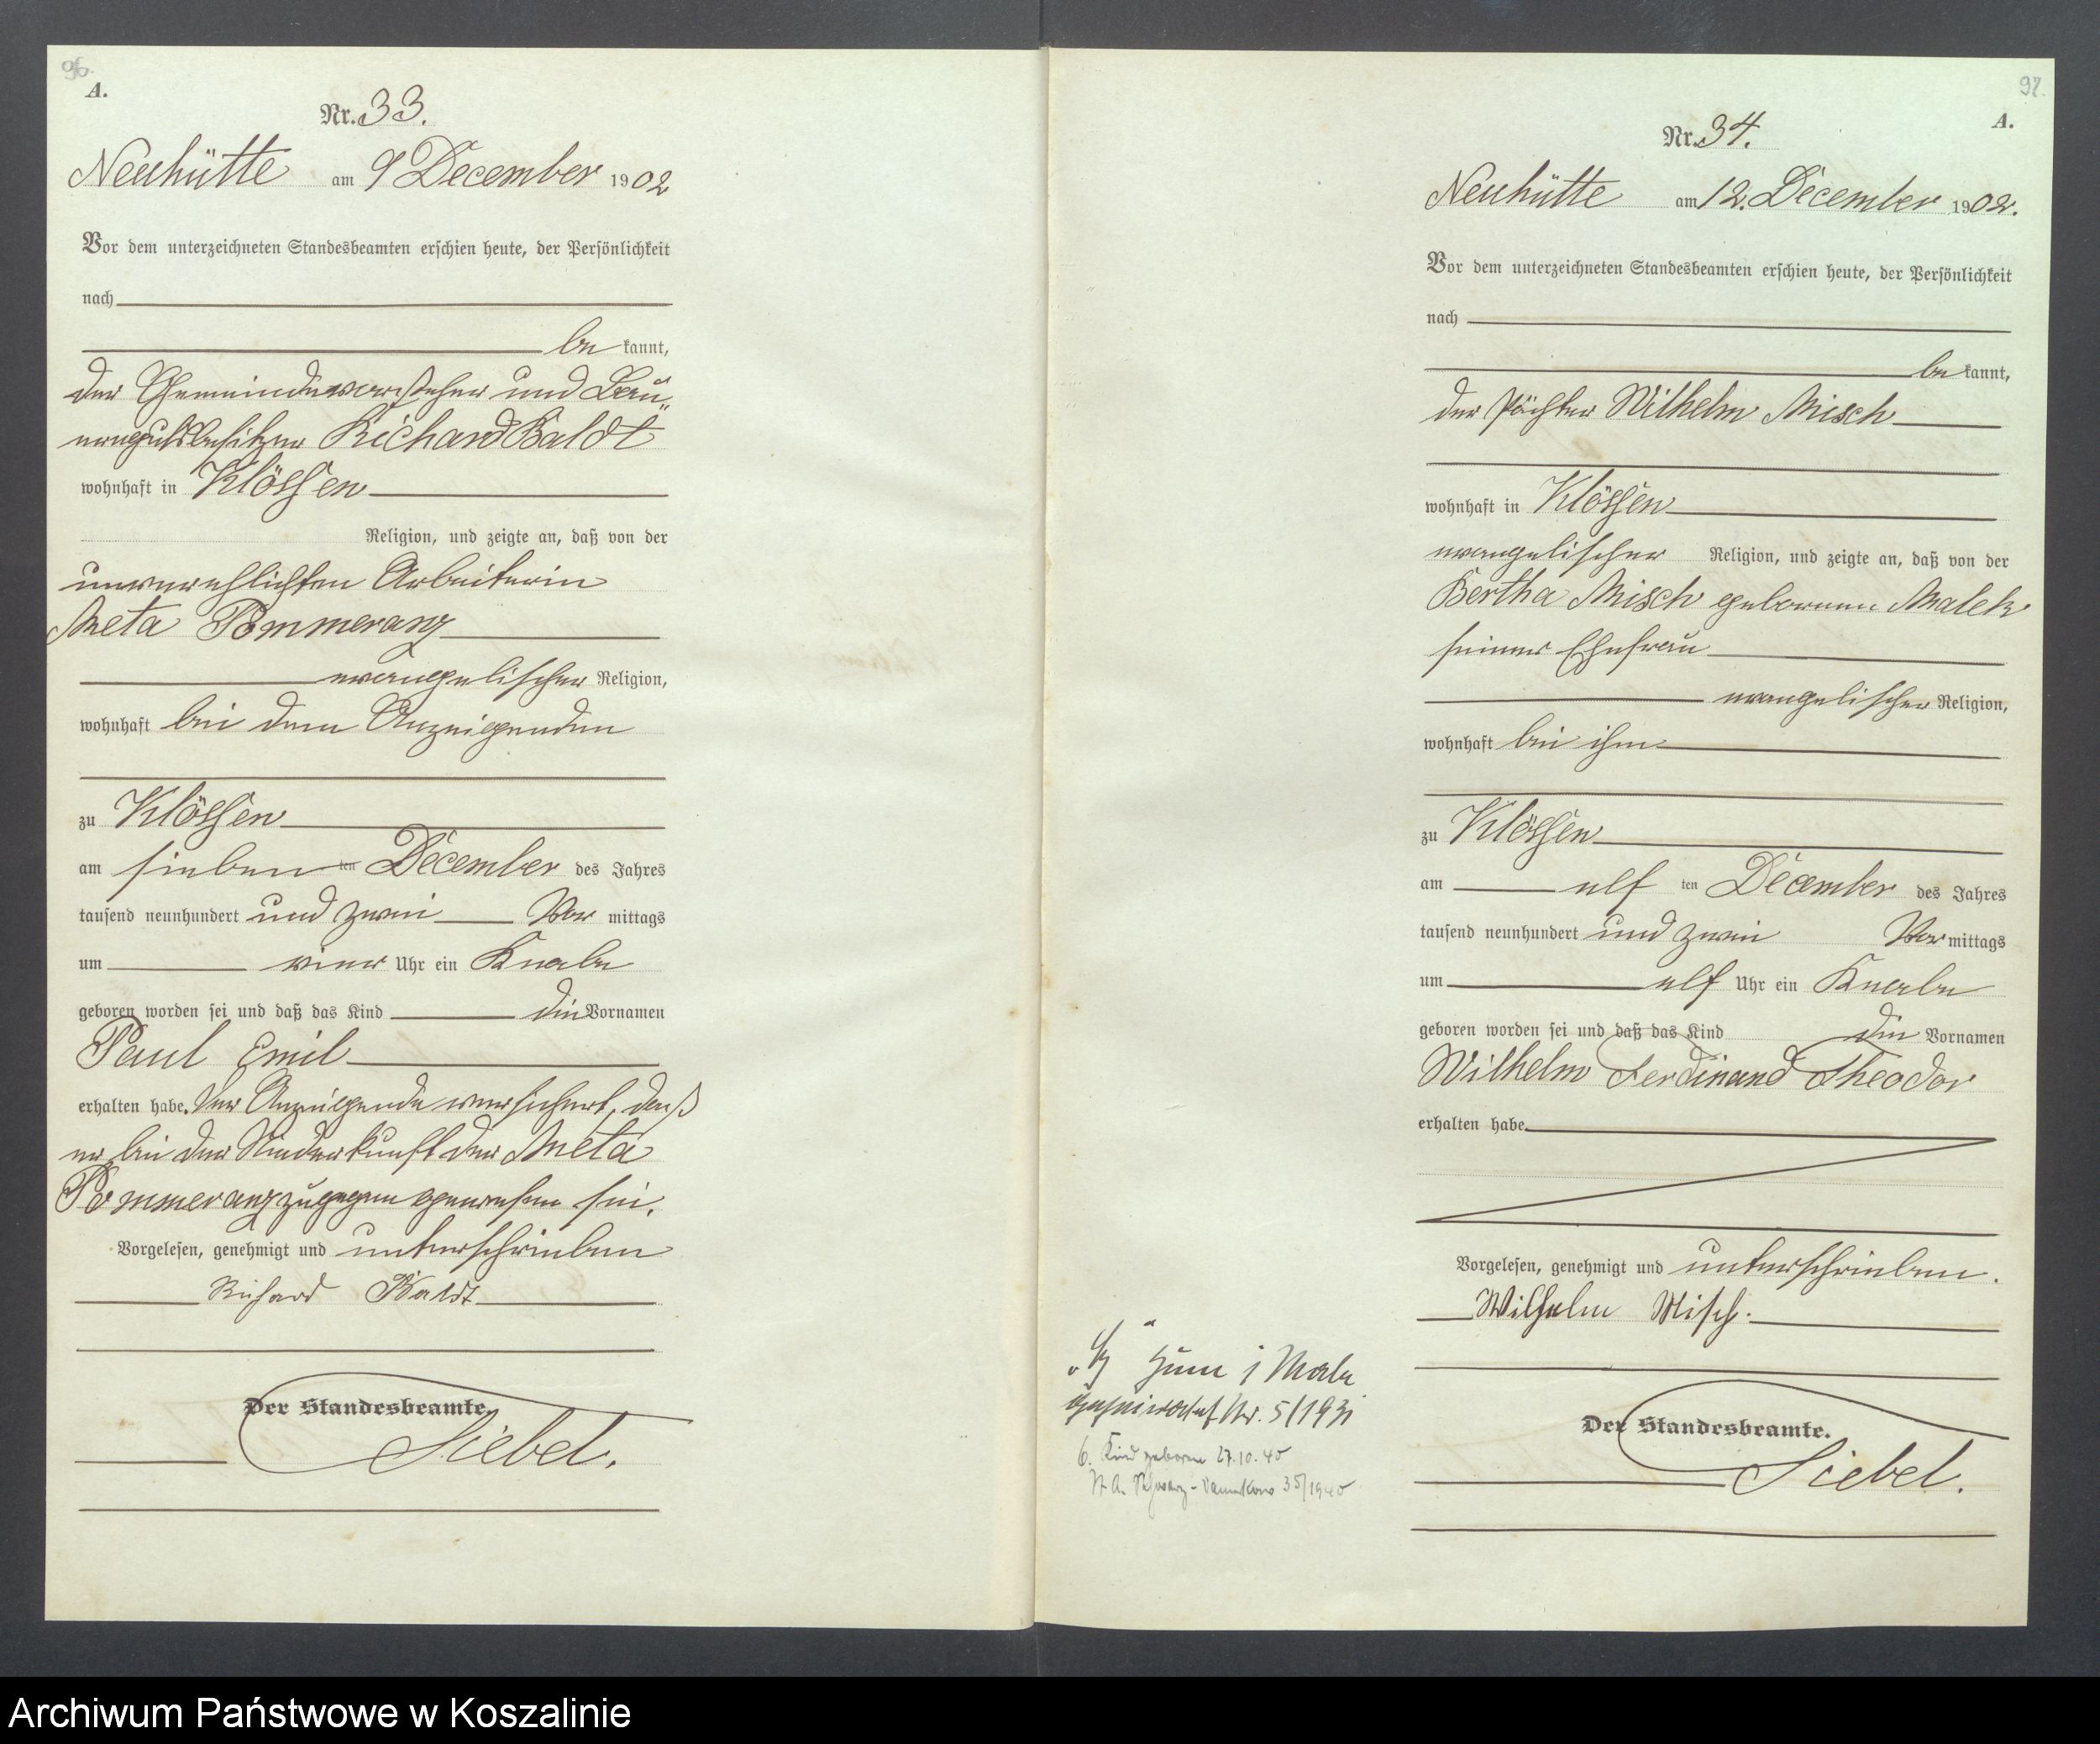 96.
A.
Nr. 33.
Neuhütte am 9 December 1902
Vor dem unterzeichneten Standesbeamten erschien heute, der Persönlichkeit
nach
be kannt,
der Gemeindevorsteher und Bau„
erngutsbesitzer Richard Baldt
wohnhaft in Klössen
Religion, und zeigte an, daß von der
unverehlichten Arbeiterin
Meta Pommeranz
evangelischer Religion,
wohnhaft bei dem Anzeigenden
zu Klössen
am sieben ten December des Jahres
tausend neunhundert und zwei Vor mittags
um vier Uhr ein Knabe
geboren worden sei und daß das Kind die Vornamen
Paul Emil
erhalten habe. Der Anzeigende versichert, daß
er bei der Niederkunft der Meta
Pommeranz zugegen gewesen sei.
Vorgelesen, genehmigt und unterschrieben
Richard Baldt
Der Standesbeamte.
Siebel.
97.
A.
Nr. 34.
Neuhütte am 12. December 1902.
Vor dem unterzeichneten Standesbeamten erschien heute, der Persönlichkeit
nach
be kannt,
der Pächter Wilhelm Misch
wohnhaft in Klössen
evangelischer Religion, und zeigte an, daß von der
Bertha Misch geborenen Malek
seiner Ehefrau
evangelischer Religion,
wohnhaft bei ihm
zu Klössen
am elf ten December des Jahres
tausend neunhundert und zwei Vor mittags
um elf Uhr ein Knabe
geboren worden sei und daß das Kind die Vornamen
Wilhelm Ferdinand Theodor
erhalten habe.
Vorgelesen, genehmigt und unterschrieben.
Wilhelm Misch.
Der Standesbeamte.
Siebel.
zum 1 Male
Nr. 5/1931
6. Kind geboren 27.10.40
St. A. 35/1940
Archiwum Państwowe w Koszalinie